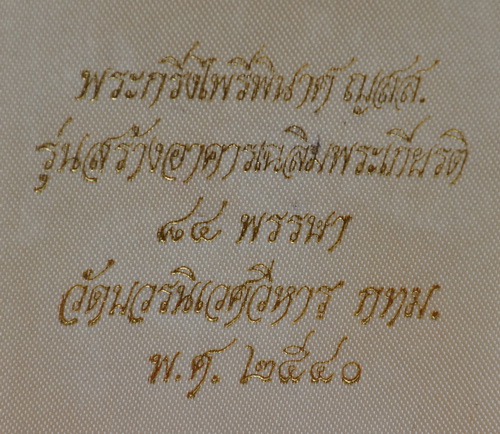 พระกริ่งไพรีพินาศ ญสส.
รุ่นสร้างอาคารเฉลิมพระเกียรติ
๘๔ พรรษา
วัดบวรนิเวศวิหาร กทม.
พ.ศ. ๒๕๔๐